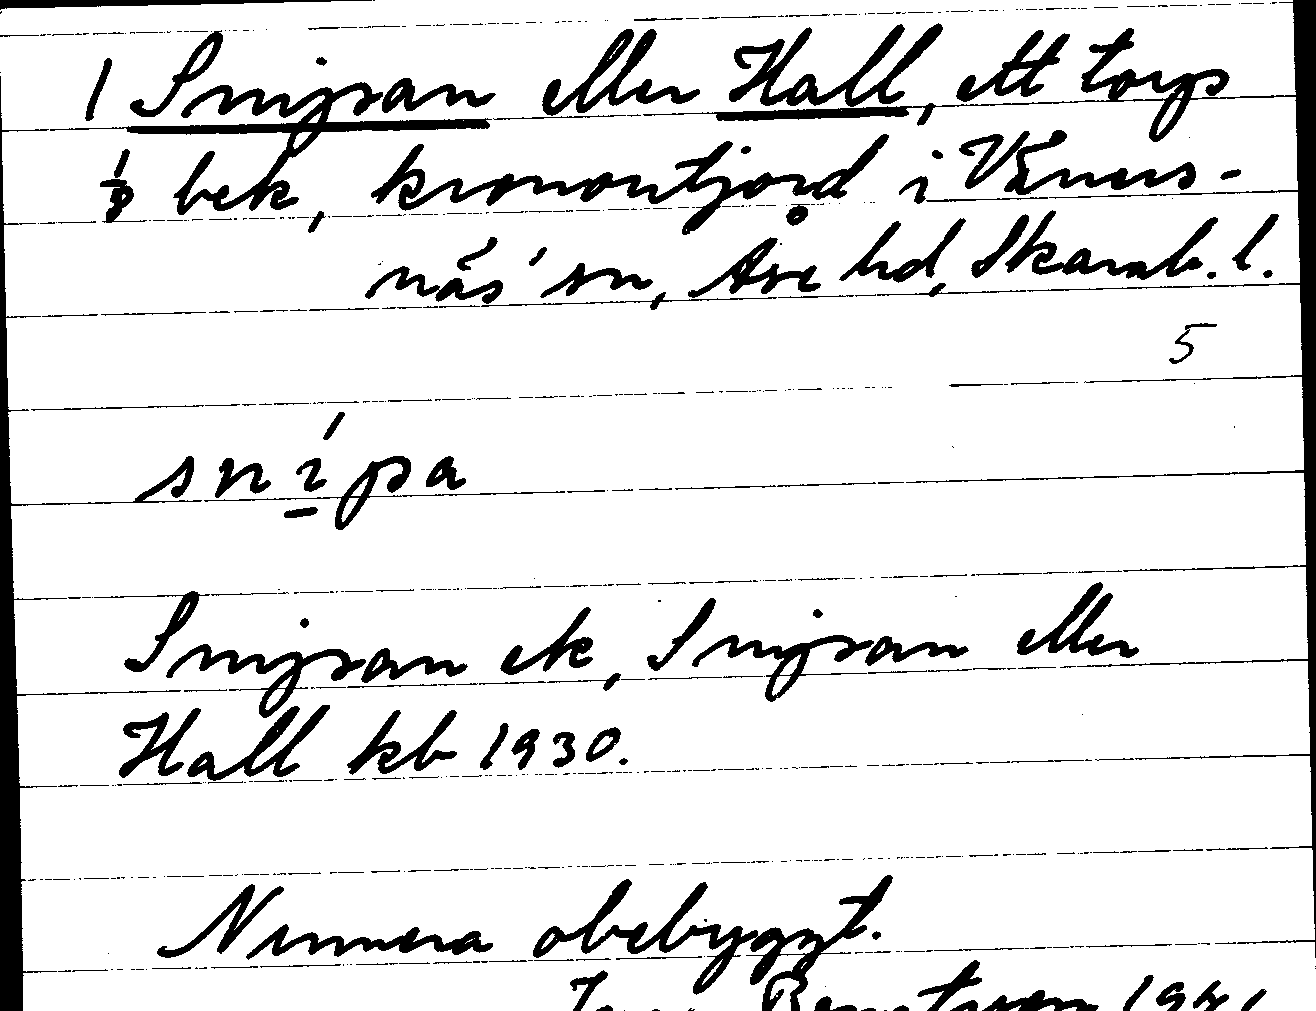 1 Snipan eller Hall, ett torp
1/8 bek, kronontjord i Väners-
näs' sn, Åse hd, Skarab. l.
5
snípa
Snipan ek, Snipan eller
Hall kb 1930.
Numera obebyggt.